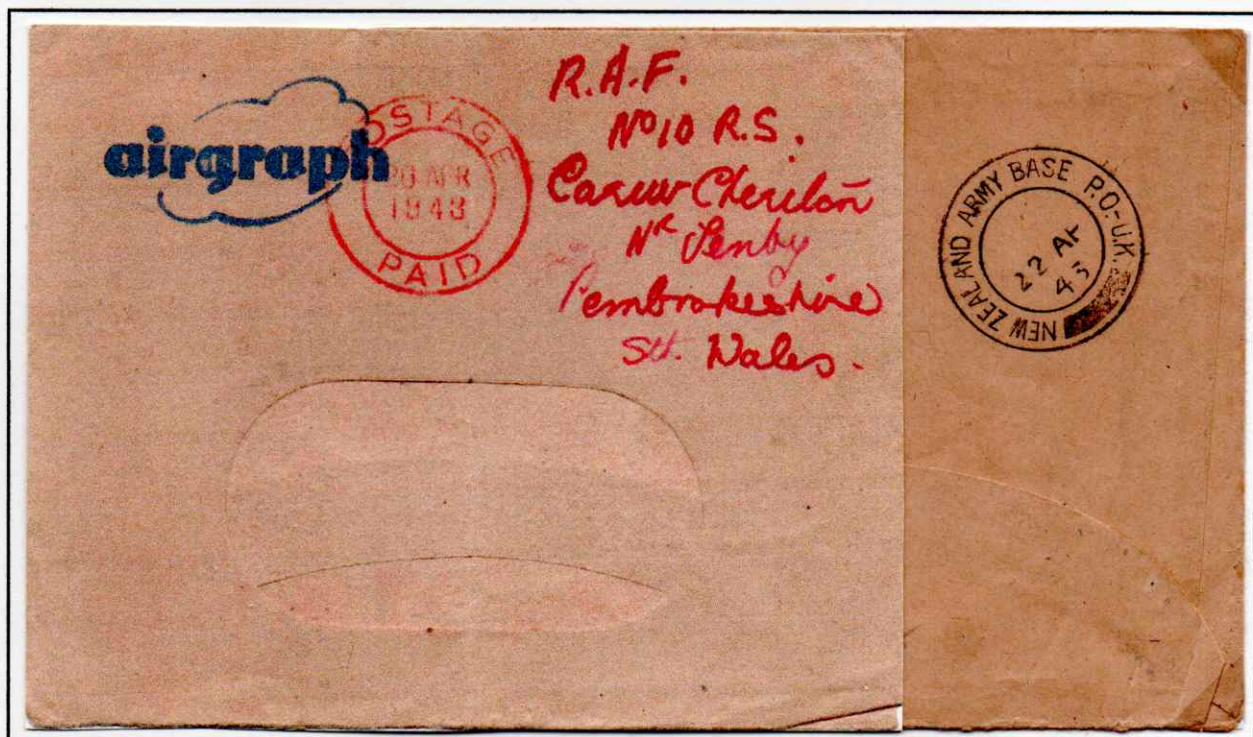 airgraph
POSTAGE
20 APR
1943
PAID
R.A.F.
No 10 R.S.
Carew Cheriton
Nr Tenby
Pembrokeshire
Sth. Wales.
NEW ZEALAND ARMY BASE P.O-U.K.
22 AP
43